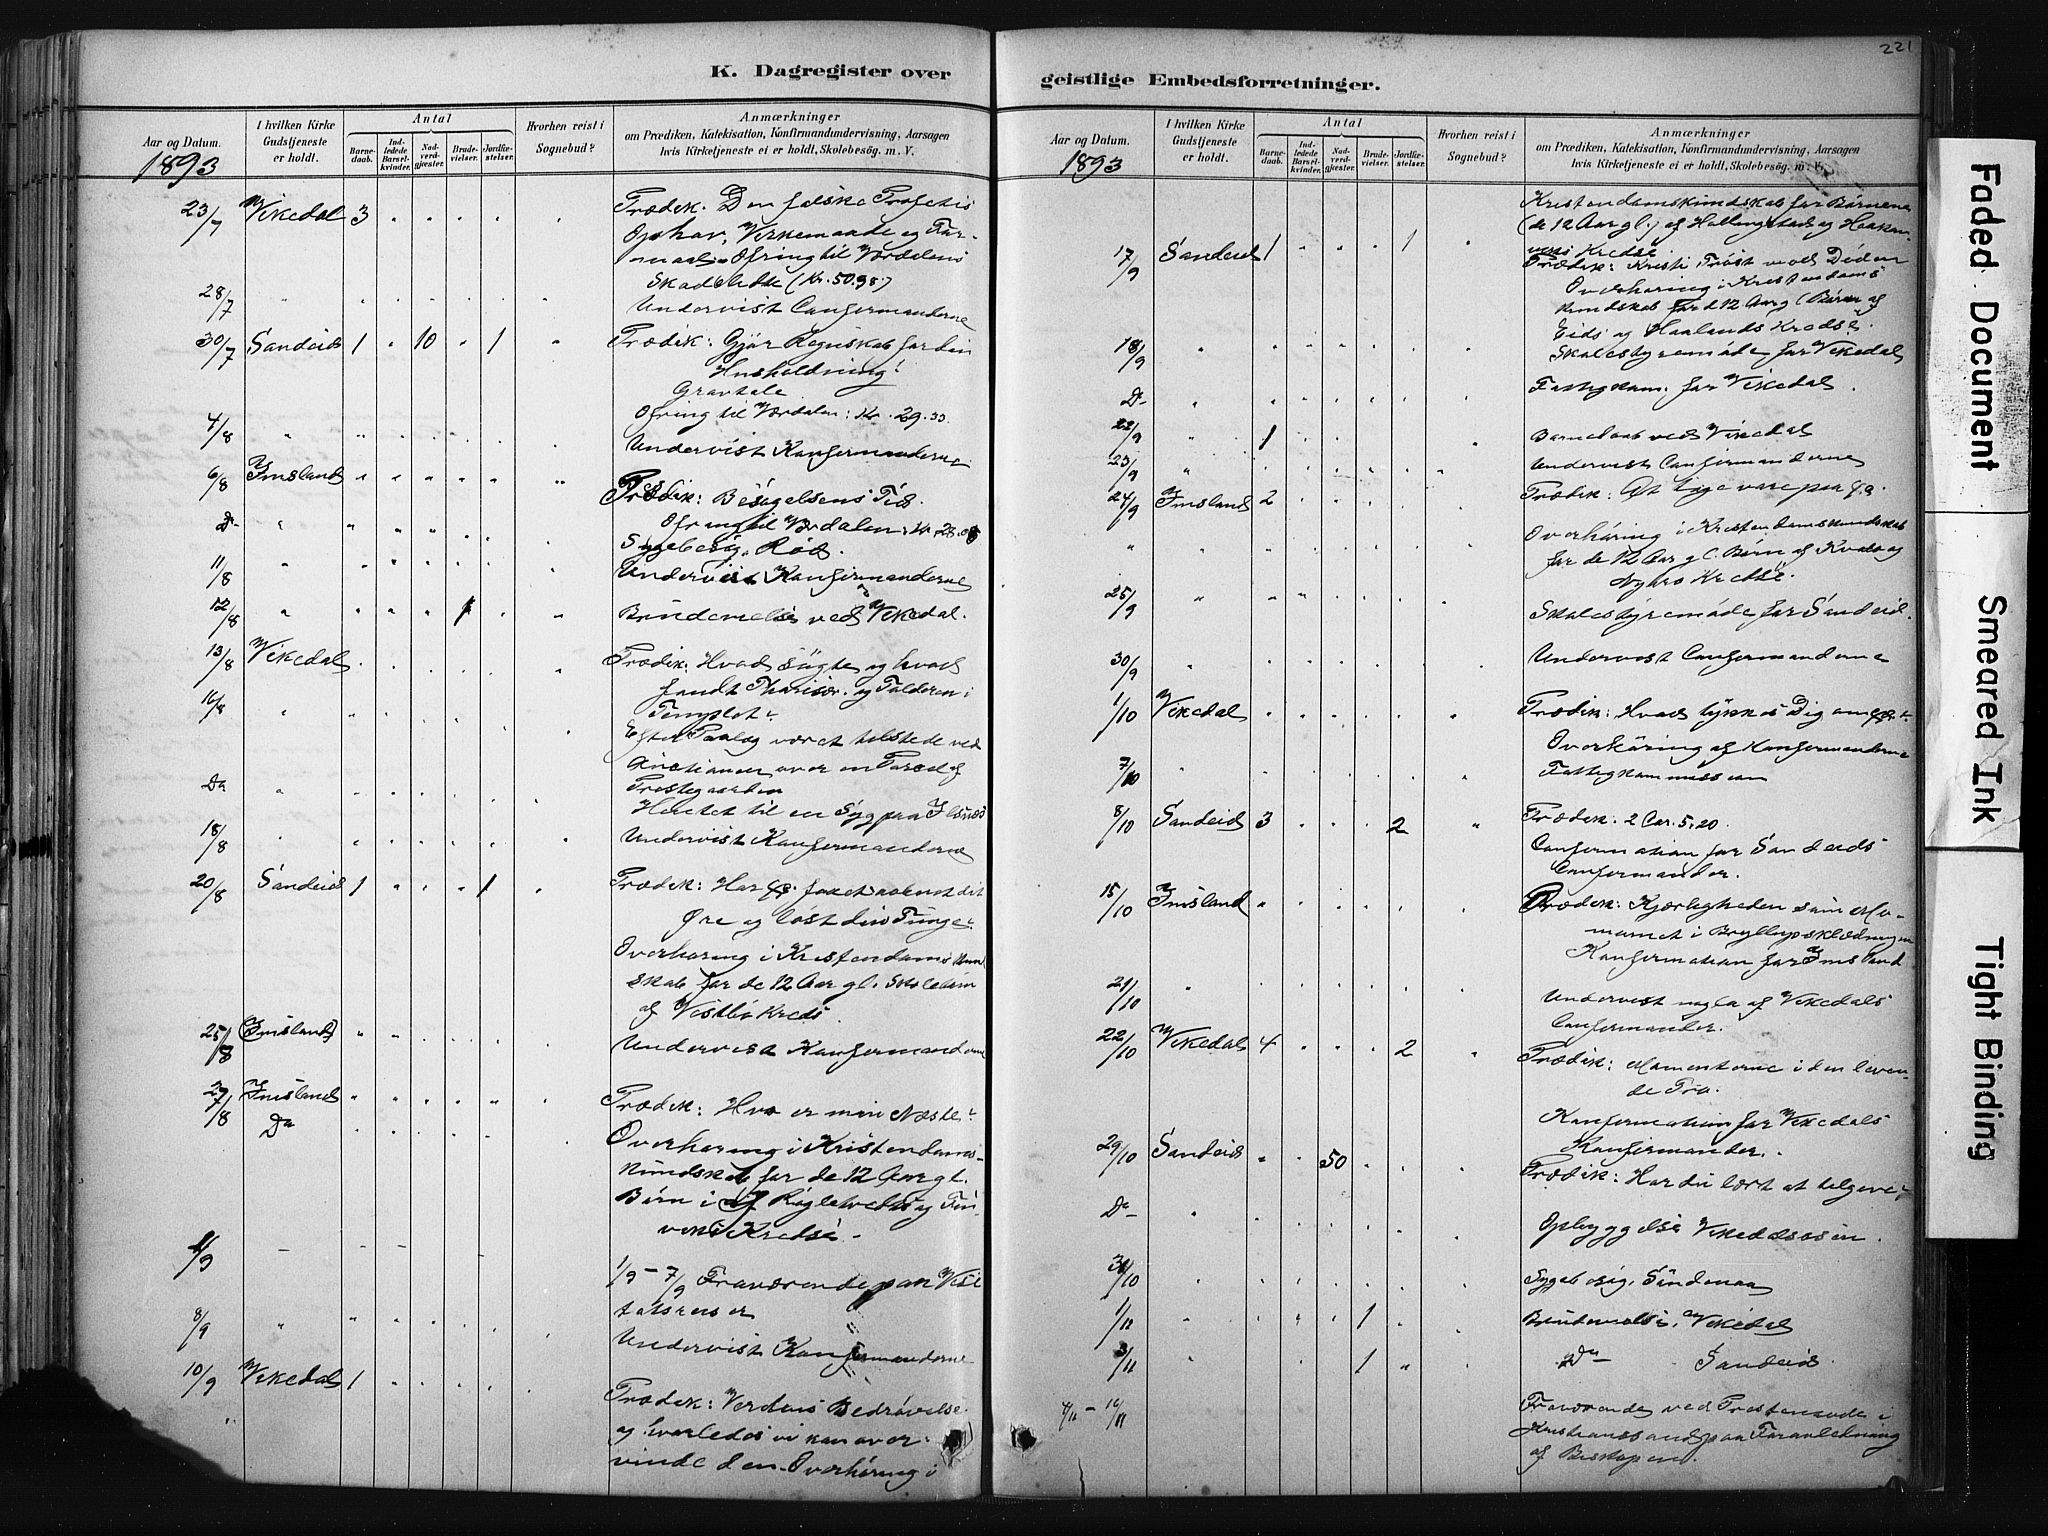 221
K. Dagregister over geistlige Embedsforretninger.
Aar og Datum.
I hvilken Kirke Gudstjeneste er holdt.
Antal
Barnedaab.
Indledede Barselkvinder.
Nadverdgjester.
Brudevielser.
Jordfæstelser.
Hvorhen reist i Sognebud?
Anmærkninger
om Prædiken, Katekisation, Konfirmandundervisning, Aarsagen
hvis Kirketjeneste ei er holdt, Skolebesøg. m. V.
1893
23/7 Vikedal 3 Prædik. Den falske Profetis
Ophav, Virkemaade og
Ofring til Værdalens
Skadelidte (Kr. 50.98)
28/7 " Undervist Confirmanderne
30/7 Sandeid 1 " 10 " 1 " Prædik: Gjør Regnskab for din
Husholdning!
Gravtale
Ofring til Værdalen: Kr. 29.33
4/8 " Undervist Konfirmanderne
6/8 Imsland Prædik: Besøgelsens Tid.
Ofring til Værdalen: Kr.
Do " Sygebesøg. Rød.
11/8 " Undervist Konfirmanderne
12/8 " 1 Brudevielse ved Vikedal.
13/8 Vikedal Prædik: Hvad søgte og hvad
fandt Pharisær. og Tolderen i
Templet?
16/8 " Efter Paalæg været tilstede ved
over en Part af
Prestegaarden
Do " Hentet til en Syg paa Ilsnæs
18/8 " Undervist Konfirmanderne
20/8 Sandeid 1 " " " 1 " Prædik: Har
Øre og løst din Tunge?
Overhøring i Kristendomskund-
skab for de 12 Aar gl. Skolebørn
af Vistbø Kreds.
25/8 (Imsland) Undervist Konfirmanderne
27/8 Imsland Prædik: Hvo er min Næste?
Do Overhøring i Kristendoms-
kundskab for de 12 Aar gl.
Børn i af og
Kredse.
1/9 1/9 - 7/9 Fraværende paa Visi-
tatsreiser
8/9 " Undervist Konfirmanderne
10/9 Vikedal 1 Prædik: Verdens Bedrøvelse
og hvorledes vi kan over-
vinde den. Overhøring i
Aar og Datum.
I hvilken Kirke Gudstjeneste er holdt.
Antal
Barnedaab.
Indledede Barselkvinder.
Nadverdgjester.
Brudevielser.
Jordfæstelser.
Hvorhen reist i Sognebud?
Anmærkninger
om Prædiken, Katekisation, Konfirmandundervisning, Aarsagen
hvis Kirketjeneste ei er holdt, Skolebesøg. m. V.
1893
Kristendomskundskab for Børnene
(de 12 Aar gl.) af og
Kredse
17/9 Sandeid 1 " " " 1 " Prædik: Kristi Trøst ved Døden
Overhøring i Kristendoms
kundskab for d 12 Aar g. Børn af
Eids og Haalands Kredse
18/9 " Skolestyremøde for Vikedal
Do " Fattigkom. for Vikedal.
22/9 " 1 Barnedaab ved Vikedal
23/9 " Undervist Confirmanderne
24/9 Imsland 2 Prædik: At
" " Overhøring i Kristendomskundskab
for de 12 Aar gl. Børn af og
Nybro Kredse.
25/9 " Skolestyremøde for Sandeid.
30/9 " Undervist Confirmanderne
1/10 Vikedal Prædik: Hvad tykkes Dig om
Overhøring af Konfirmanderne
7/10 " Fattigkommission
8/10 Sandeid 3 " " " 2 " Prædik: 2 Cor. 5,20
Confirmation for Sandeids
Confirmander.
15/10 Imsland Prædik: Kjærligheden som
i Bryllupsklædningen
Konfirmation for Imsland
21/10 " Undervist nogle af Vikedals
Confirmander.
22/10 Vikedal 4 " " " 2 " Prædik: Momenterne i den leven-
de Tro.
Konfirmation for Vikedals
Konfirmander.
29/10 Sandeid " " 50 Prædik: Har du lært at tilgive?
Do " Opbyggelse Vikedalsosen.
30/10 Sygebesøg, Søndenaa
1/11 " 1 Brudevielse, Vikedal
3/11 " 1 " Do Sandeid.
4/11 - 10/11 Fraværende ved Prestemøde i
Kristianssand paa Foranledning
af Biskopen.
Faded Document
Smeared Ink
Tight Binding